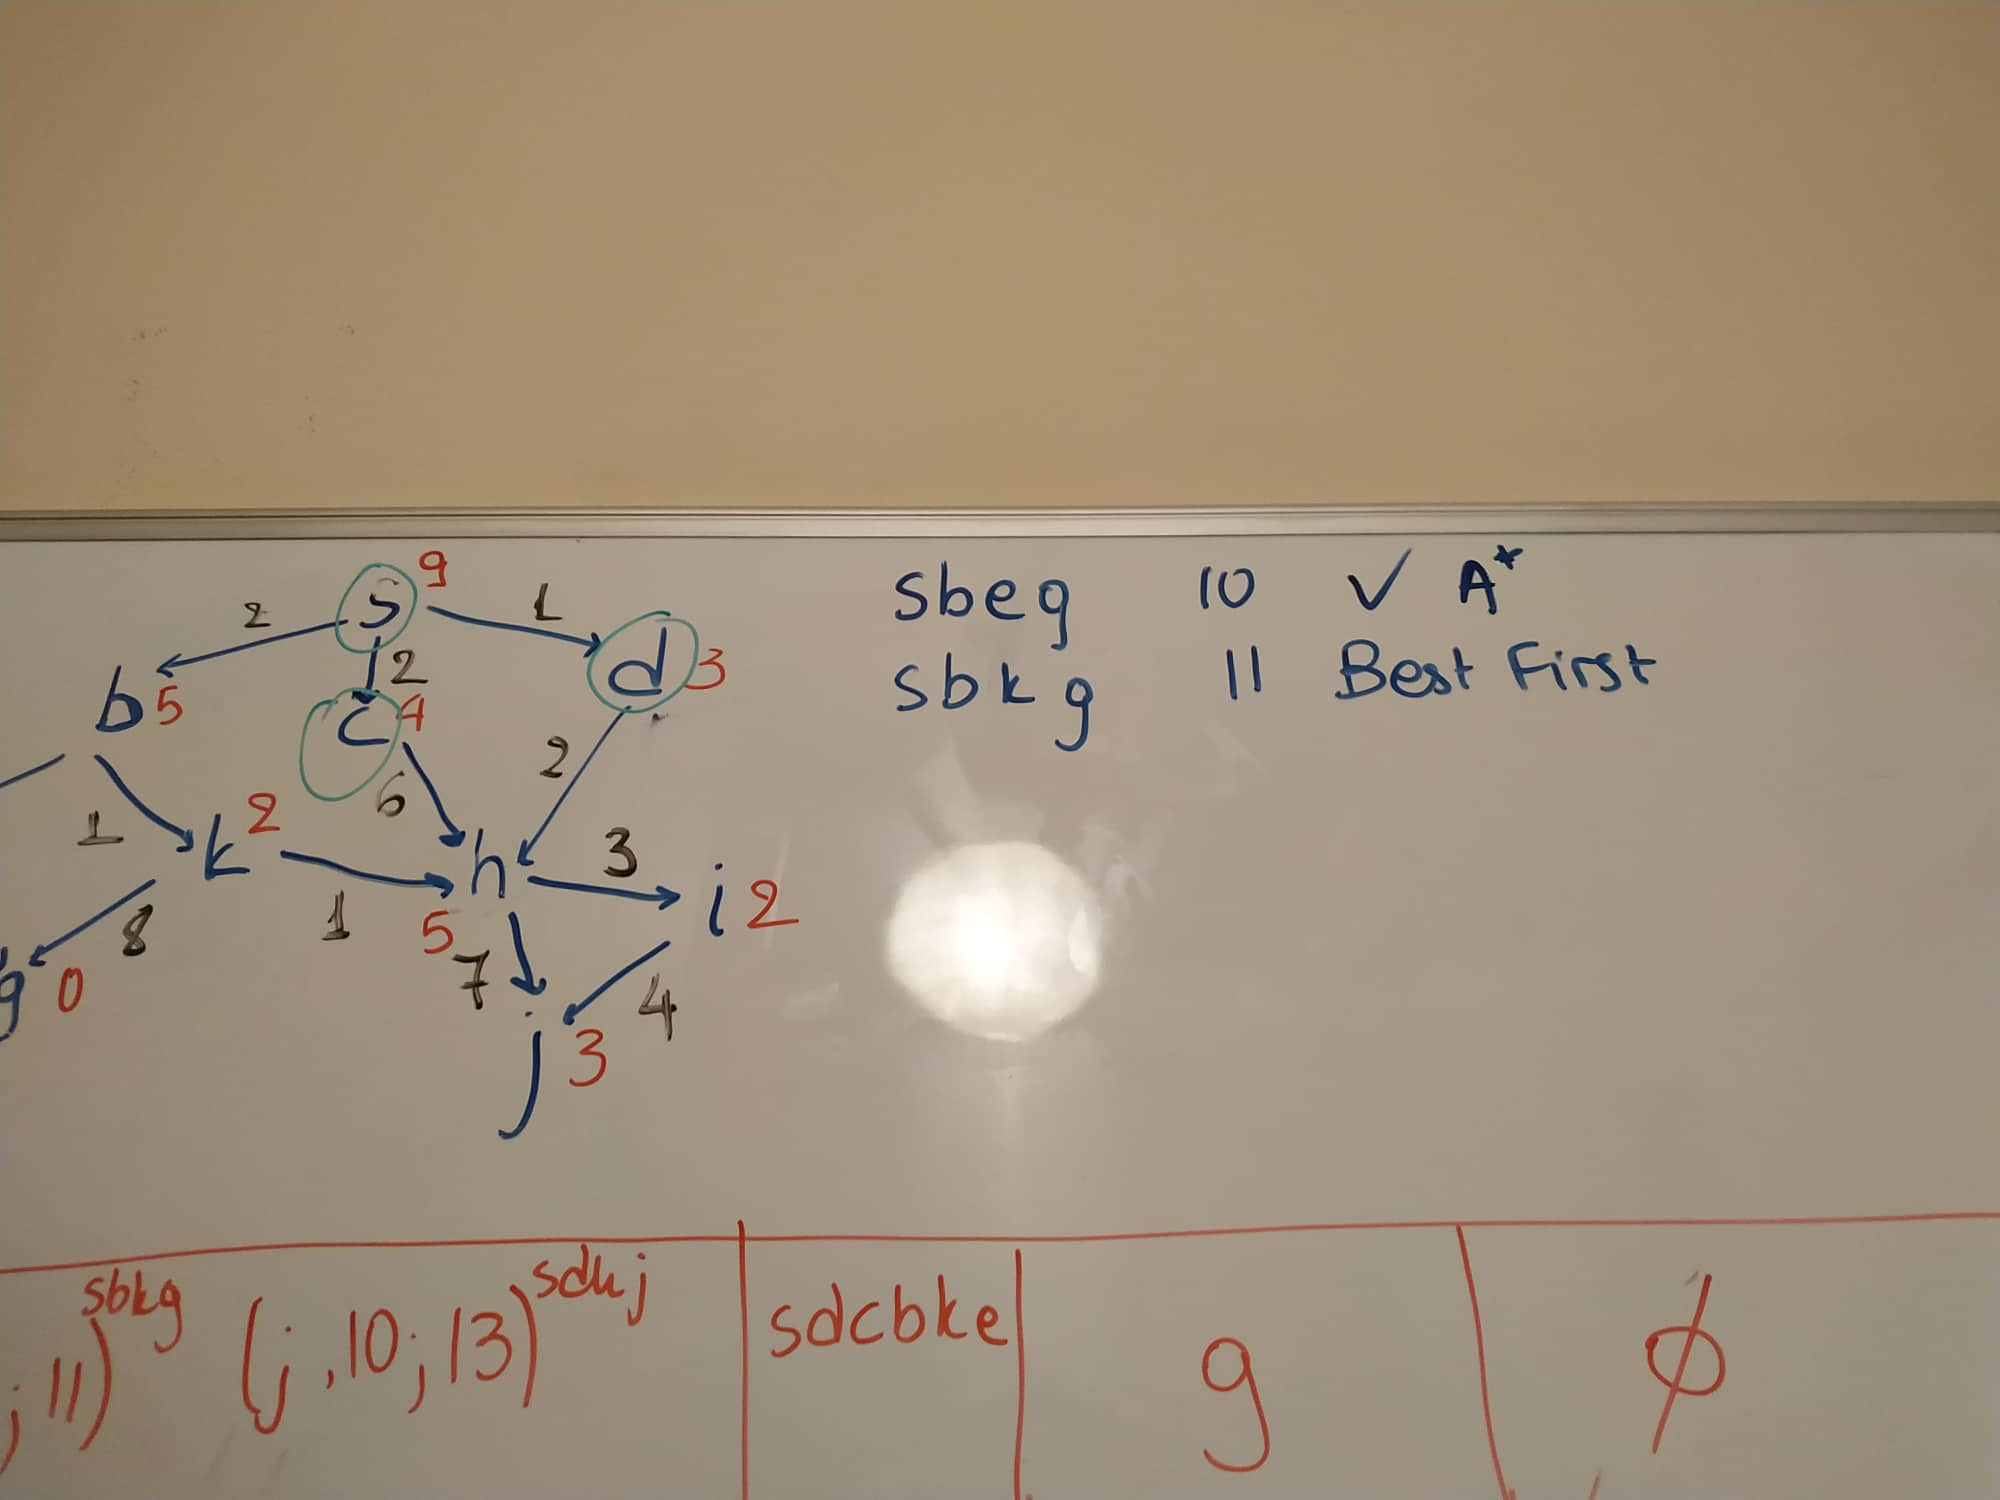 s 9
2
1
2
d 3
b 5
c 4
6
2
1
k 2
h
3
8
1
5
i 2
7
4
g 0
j 3
sbeg 10 ✓ A*
sbkg 11 Best First
; 11) sbkg (j, 10; 13) sdhj
sdcbke
g
ϕ